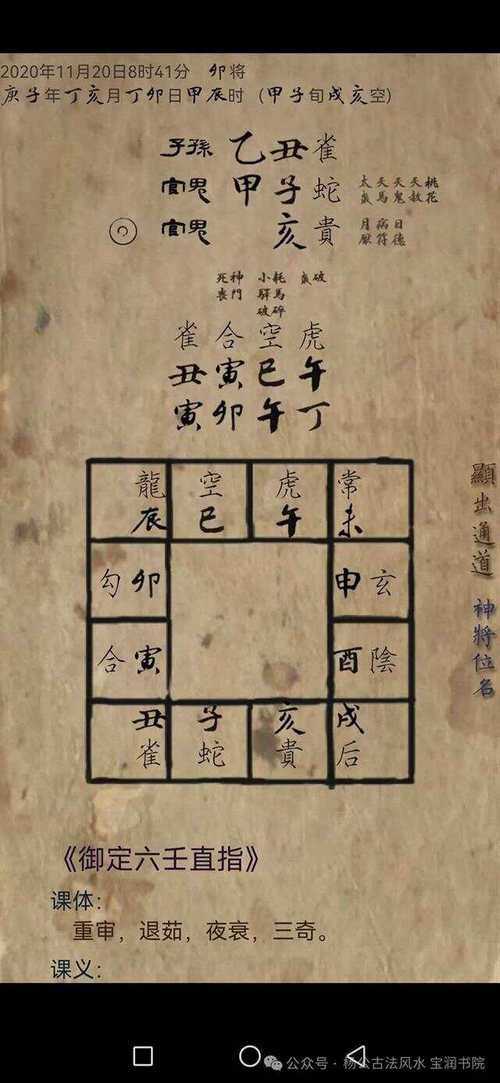 2020年11月20日8时41分 卯将
庚子年丁亥月丁卯日甲辰时（甲子旬戌亥空）
子孫 乙丑雀
官鬼 甲子蛇 太歲 天馬 天鬼 天赦 桃花
官鬼 亥貴 月厭 病符 日德
死神 小耗 歲破
喪門 驛馬
破碎
雀合空虎
丑寅巳午
寅卯午丁
龍 空 虎 常
辰 巳 午 未
勾卯 申玄
合寅 酉陰
丑 子 亥 戌
雀 蛇 貴 后
顯出通道 神將位名
《御定六壬直指》
课体：
重审，退茹，夜衰，三奇。
课义：
公众号 · 杨公古法风水 宝润书院